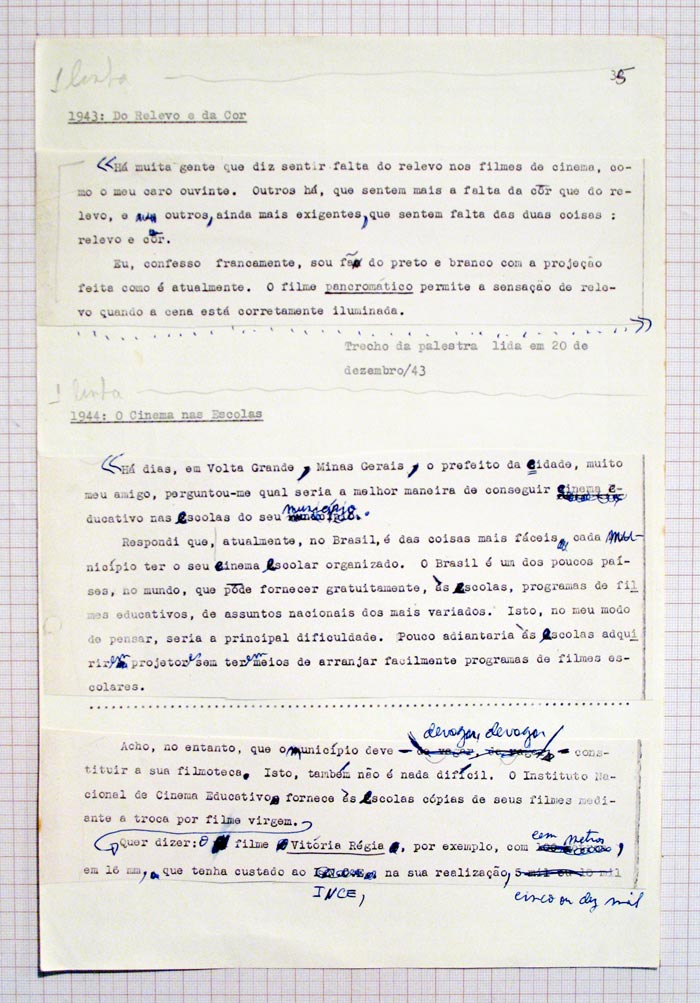 1 linha
35
1943: Do Relevo e da Cor
«Há muita gente que diz sentir falta do relevo nos filmes de cinema, co-
mo o meu caro ouvinte. Outros há, que sentem mais a falta da côr que do re-
levo, e outros, ainda mais exigentes, que sentem falta das duas coisas :
relevo e côr.
Eu, confesso francamente, sou fã do preto e branco com a projeção
feita como é atualmente. O filme pancromático permite a sensação de rele-
vo quando a cena está corretamente iluminada.
»
Trecho da palestra lida em 20 de
dezembro/43
1 linha
1944: O Cinema nas Escolas
«Há dias, em Volta Grande, Minas Gerais, o prefeito da cidade, muito
meu amigo, perguntou-me qual seria a melhor maneira de conseguir cinema e-
município.
ducativo nas escolas do seu
Respondi que, atualmente, no Brasil, é das coisas mais fáceis cada mu-
nicípio ter o seu cinema escolar organizado. O Brasil é um dos poucos paí-
ses, no mundo, que pôde fornecer gratuitamente, às escolas, programas de fil
mes educativos, de assuntos nacionais dos mais variados. Isto, no meu modo
de pensar, seria a principal dificuldade. Pouco adiantaria às escolas adqui
rirem projetores sem terem meios de arranjar facilmente programas de filmes es-
colares.
devagar, devagar
Acho, no entanto, que o município deve - de vagar, de vagar - cons-
tituir a sua filmoteca. Isto, também não é nada difícil. O Instituto Na-
cional de Cinema Educativo fornece às escolas cópias de seus filmes medi-
ante a troca por filme virgem.
cem metros
Quer dizer: o filme Vitória Régia, por exemplo, com ,
em 16 mm, que tenha custado ao na sua realização, 5 mil ou 10 mil
INCE,
cinco ou dez mil